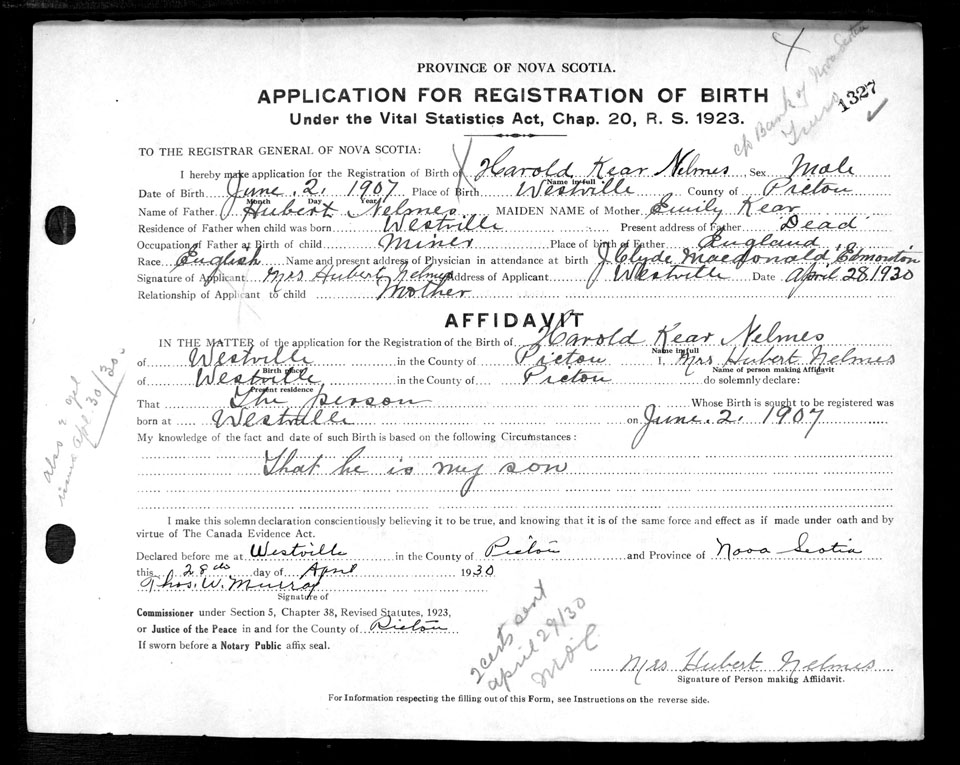 PROVINCE OF NOVA SCOTIA.
APPLICATION FOR REGISTRATION OF BIRTH
Under the Vital Statistics Act, Chap. 20, R. S. 1923.
1327
c/o Bank of Nova Scotia
TO THE REGISTRAR GENERAL OF NOVA SCOTIA:
I hereby make application for the Registration of Birth of Harold Kear Nelmes Sex Male
Name in full
Date of Birth June 2, 1907 Place of Birth Westville County of Pictou
Month Day Year
Name of Father Hubert Nelmes MAIDEN NAME of Mother Emily Kear
Residence of Father when child was born Westville Present address of Father Dead
Occupation of Father at Birth of child Miner Place of birth of Father England
Race English Name and present address of Physician in attendance at birth J. Clyde Macdonald, Edmonton
Signature of Applicant Mrs Hubert Nelmes Address of Applicant Westville Date April 28, 1930
Relationship of Applicant to child Mother
AFFIDAVIT
IN THE MATTER of the application for the Registration of Birth of Harold Kear Nelmes
Name in full
of Westville in the County of Pictou I, Mrs Hubert Nelmes
Birth place Name of person making Affidavit
of Westville in the County of Pictou do solemnly declare:
Present residence
That The person Whose Birth is sought to be registered was
born at Westville on June 2, 1907
My knowledge of the fact and date of such Birth is based on the following Circumstances:
That he is my son
I make this solemn declaration conscientiously believing it to be true, and knowing that it is of the same force and effect as if made under oath and by
virtue of The Canada Evidence Act.
Declared before me at Westville in the County of Pictou and Province of Nova Scotia
this 28th day of April 1930
Thos. W. Murray
Signature of
Commissioner under Section 5, Chapter 38, Revised Statutes, 1923,
or Justice of the Peace in and for the County of Pictou
If sworn before a Notary Public affix seal.
2 certs sent
April 29/30
Mrs Hubert Nelmes
Signature of Person making Affidavit.
For Information respecting the filling out of this Form, see Instructions on the reverse side.